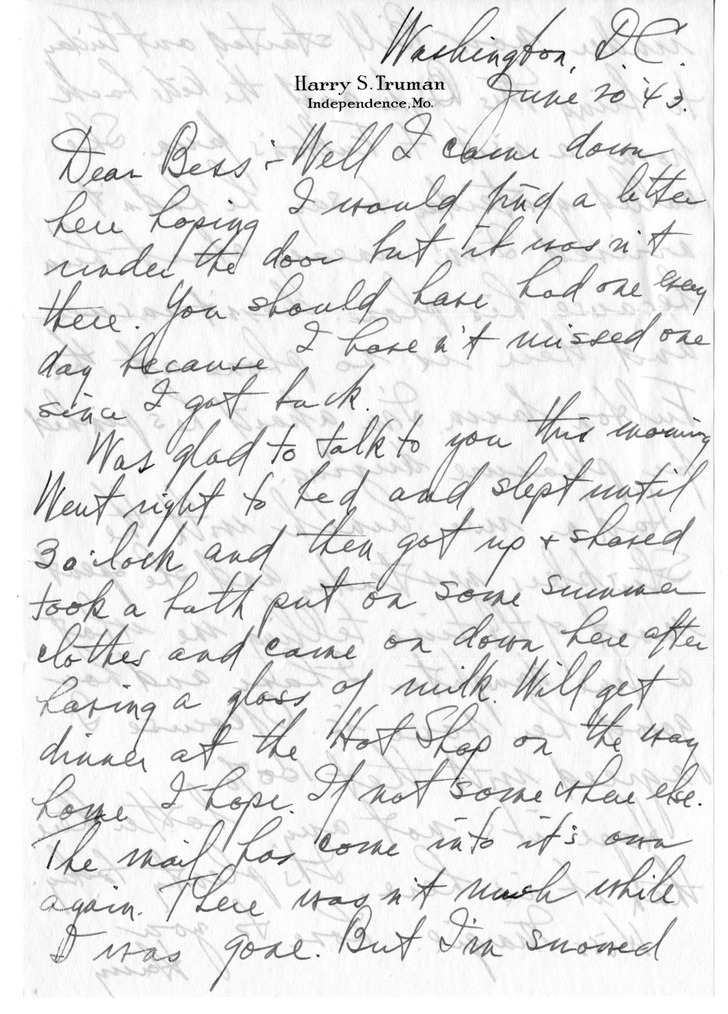 Washington, D.C.
Harry S. Truman
Independence, Mo.
June 20 '43.
Dear Bess :- Well I came down
here hoping I would find a letter
under the door but it was n't
there. You should have had one every
day because I have n't missed one
since I got back.
Was glad to talk to you this morning
Went right to bed and slept until
3 o'clock and then got up + shaved
took a bath put on some summer
clothes and came on down here after
having a glass of milk. Will get
dinner at the Hot Shop on the way
home I hope. If not some where else.
The mail has come into it's own
again. There was n't much while
I was gone. But I'm snowed